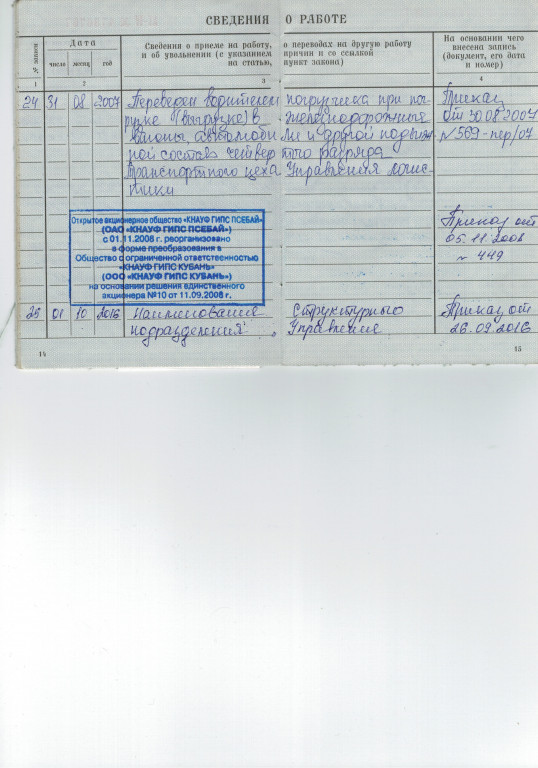 СВЕДЕНИЯ О РАБОТЕ
№ записи
Дата
число месяц год
Сведения о приеме на работу, о переводах на другую работу
и об увольнении (с указанием причин и со ссылкой
на статью, пункт закона)
На основании чего
внесена запись
(документ, его дата
и номер)
1 2 3 4
24 31 08 2007 Переведен водителем погрузчика при по- Приказ
грузке (выгрузке) в железнодорожные от 30.08.2007
вагоны, автомобили и другой подвиж- № 569-пер/07
ной состав четвертого разряда
транспортного цеха Управления логис-
тики
Открытое акционерное общество «КНАУФ ГИПС ПСЕБАЙ»
(ОАО «КНАУФ ГИПС ПСЕБАЙ»)
с 01.11.2006 г. реорганизовано
в форме преобразования в
Общество с ограниченной ответственностью
«КНАУФ ГИПС КУБАНЬ»
(ООО «КНАУФ ГИПС КУБАНЬ»)
на основании решения единственного
акционера №10 от 11.09.2008 г.
Приказ от
05.11.2008
№ 449
25 01 10 2016 Наименование структурного Приказ от
подразделения "Управление 26.09.2016
14 15